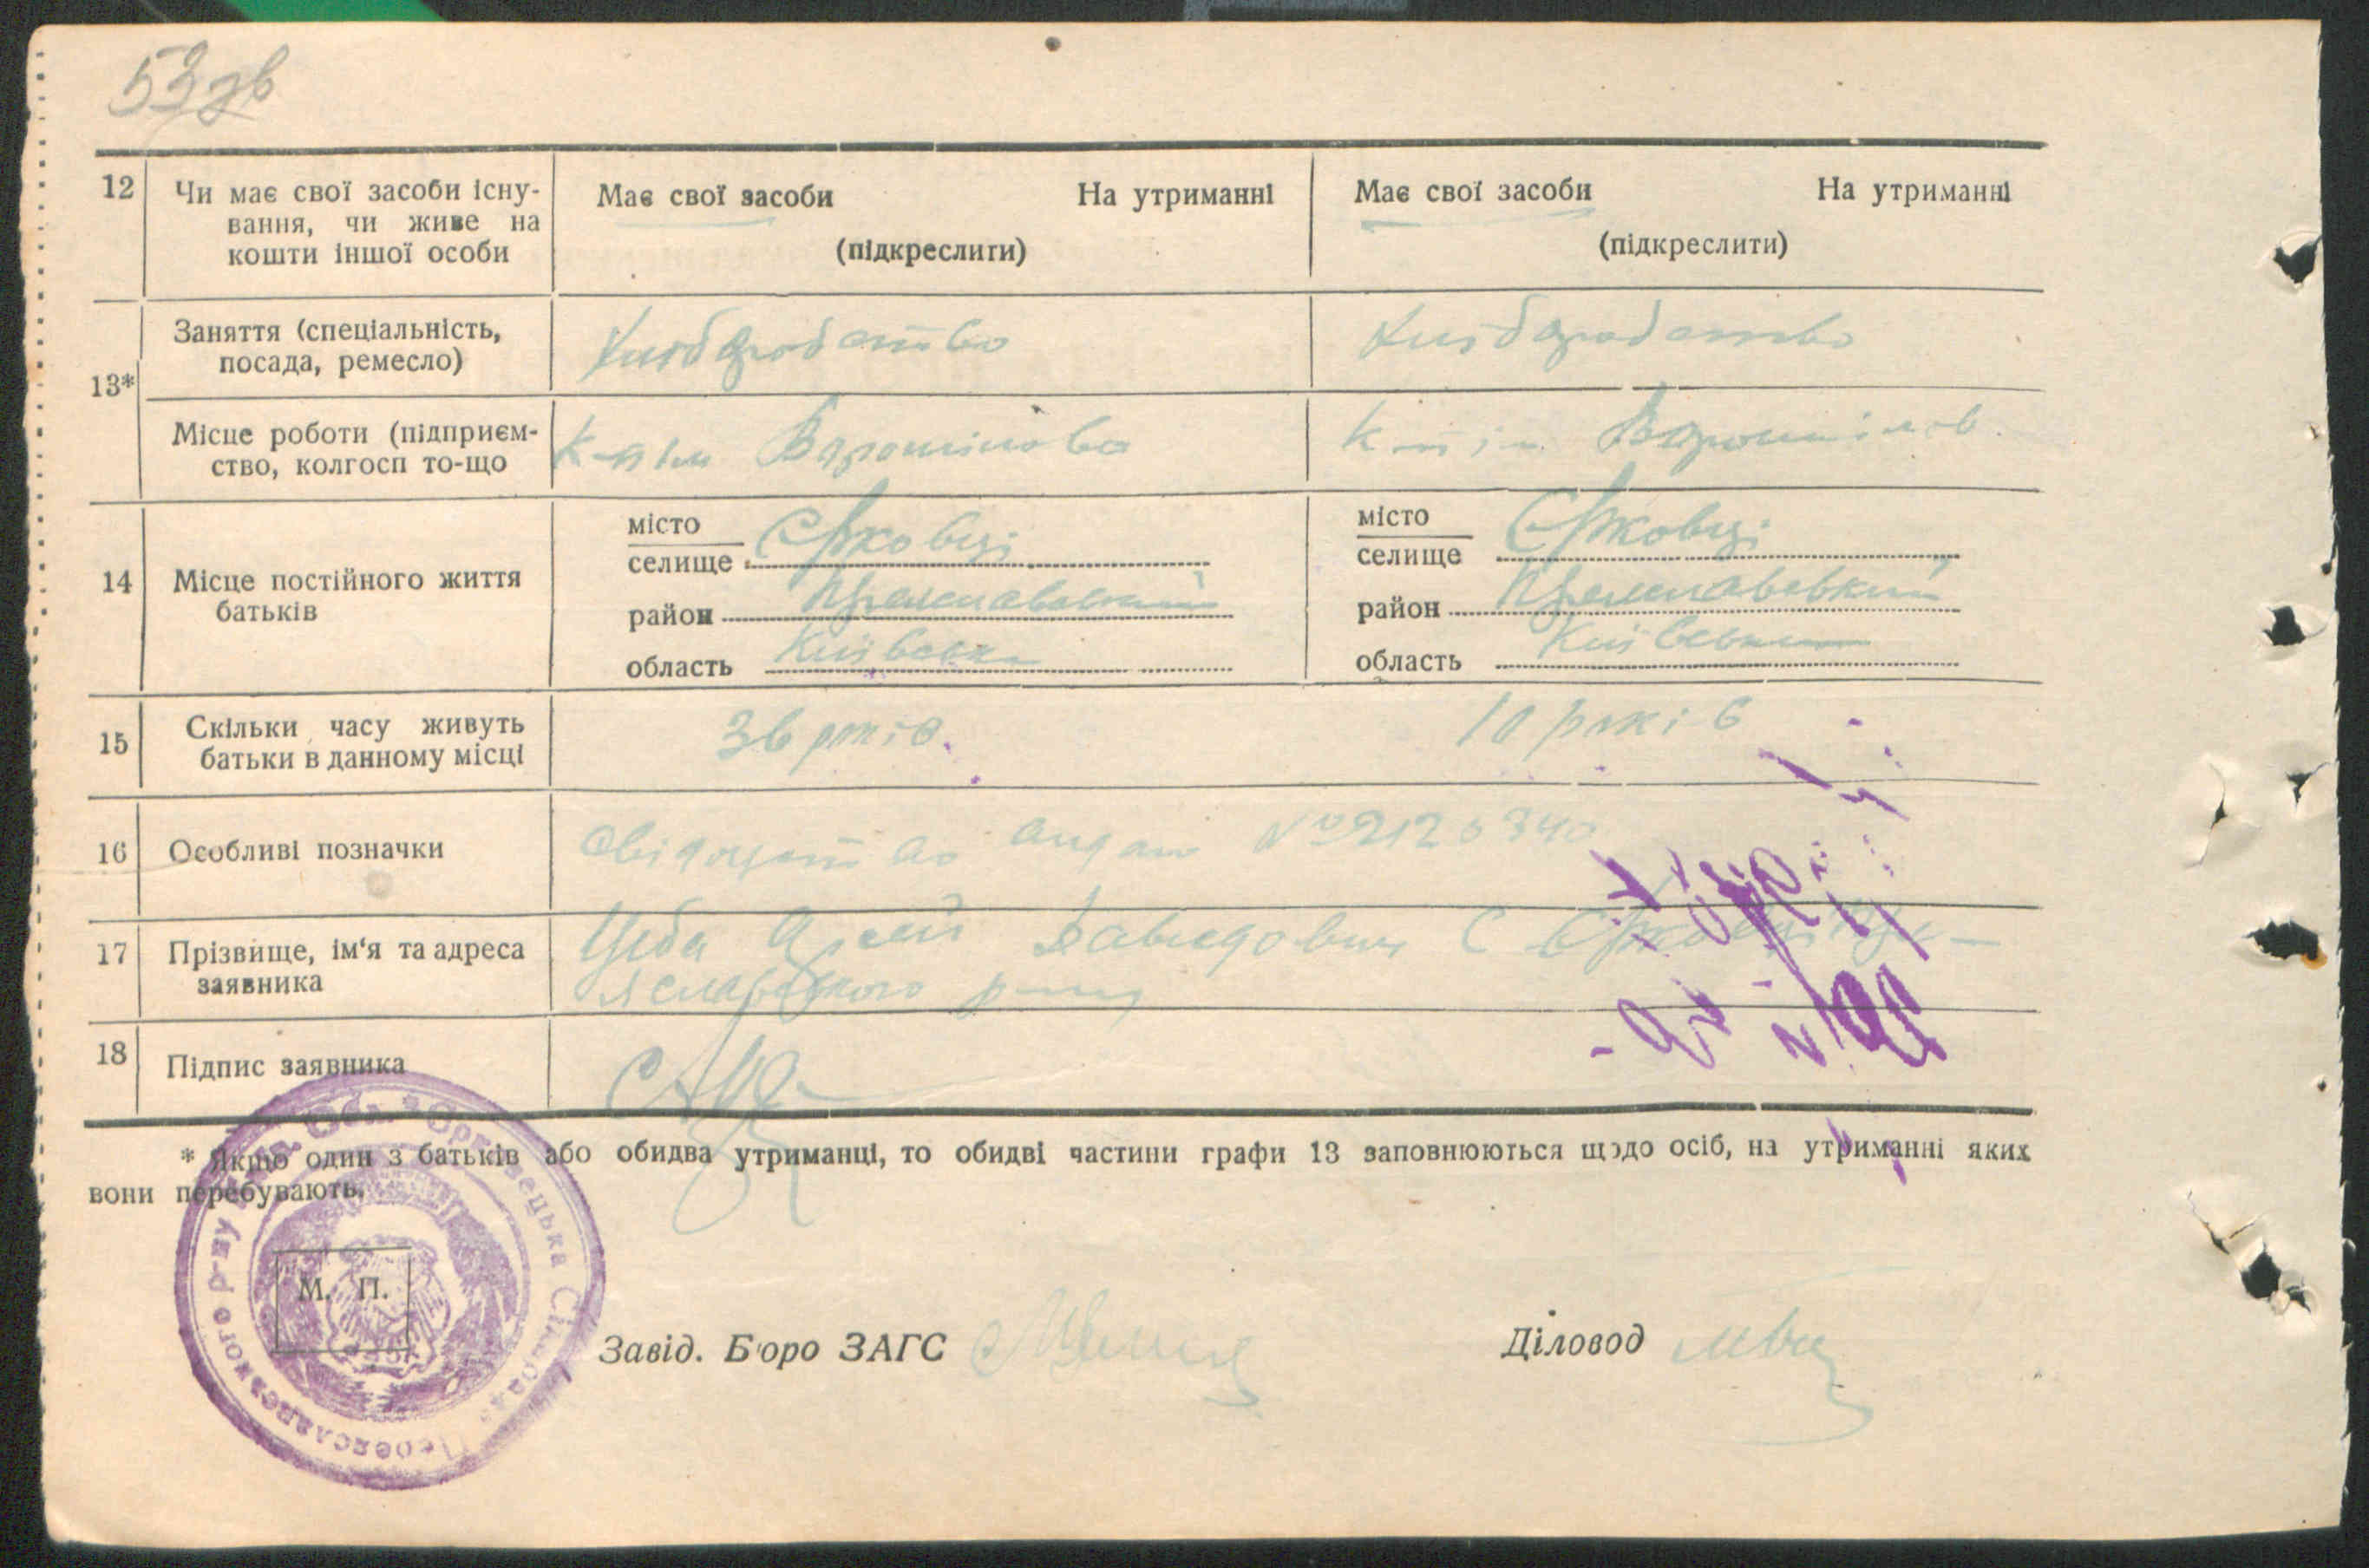 53 зв
12 Чи має свої засоби існу- Має свої засоби На утриманні Має свої засоби На утриманні
вання, чи живе на (підкреслити) (підкреслити)
кошти іншої особи
Заняття (спеціальність, Хліборобство Хліборобство
посада, ремесло)
13*
Місце роботи (підприєм- К-п ім Ворошилова К-п ім. Ворошилов.
ство, колгосп то-що
місто місто
селище Єрковці селище Єрковці
14 Місце постійного життя
батьків
район Переяславський район Переяславський
область Київська область Київська
15 Скільки часу живуть 36 років. 10 років
батьки в данному місці
16 Особливі позначки Свідоцтво видано № 2126340
17 Прізвище, ім'я та адреса Цеба Давидович С Єрковці Пере-
заявника яславського р-ну
18 Підпис заявника
* Якщо один з батьків або обидва утриманці, то обидві частини графи 13 заповнюються щодо осіб, на утриманні яких
вони перебувають.
М. П.
Завід. Бюро ЗАГС
Діловод